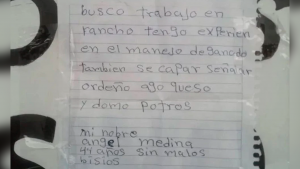 busco trabajo en
rancho tengo experien
en el manejo deganado
tambien se capar señalar
ordeño ago queso
y domo potros
mi nobre
angel medina
47 años sin malos
bisios